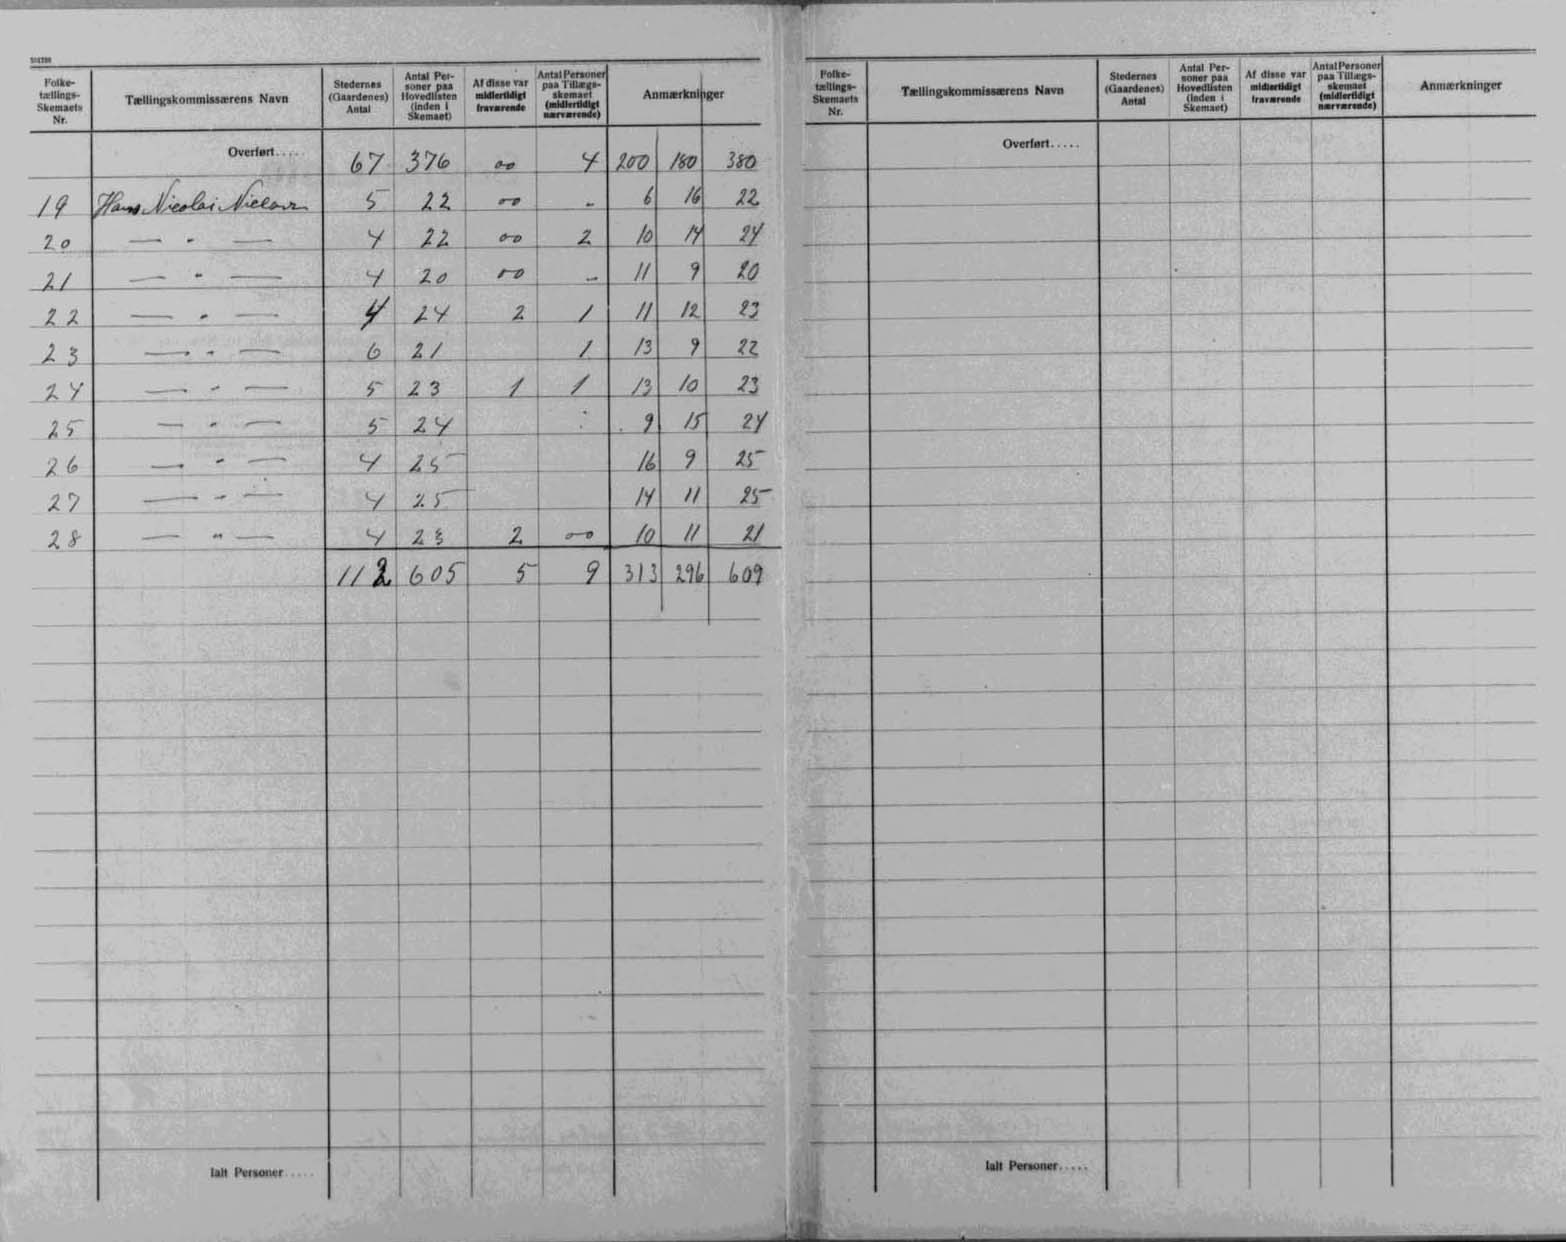 Folke-
tællings-
Skemaets
Nr.
Tællingskommissærens Navn
Stedernes
(Gaardenes)
Antal
Antal Per-
soner paa
Hovedlisten
(inden i
Skemaet)
Af disse var
midlertidigt
fraværende
Antal Personer
paa Tillægs-
skemaet
(midlertidigt
nærværende)
Anmærkninger
Overført..... 67 376 00 4 200 180 380
19 Hans Nicolai Nielsen 5 22 00 - 6 16 22
20 — " — 4 22 00 2 10 14 24
21 — " — 4 20 00 - 11 9 20
22 — " — 4 24 2 1 11 12 23
23 — " — 6 21 1 13 9 22
24 — " — 5 23 1 1 13 10 23
25 — " — 5 24 9 15 24
26 — " — 4 25 16 9 25
27 — " — 4 25 14 11 25
28 — " — 4 23 2 00 10 11 21
112 605 5 9 313 296 609
Ialt Personer.....
Folke-
tællings-
Skemaets
Nr.
Tællingskommissærens Navn
Stedernes
(Gaardenes)
Antal
Antal Per-
soner paa
Hovedlisten
(inden i
Skemaet)
Af disse var
midlertidigt
fraværende
Antal Personer
paa Tillægs-
skemaet
(midlertidigt
nærværende)
Anmærkninger
Overført.....
Ialt Personer.....